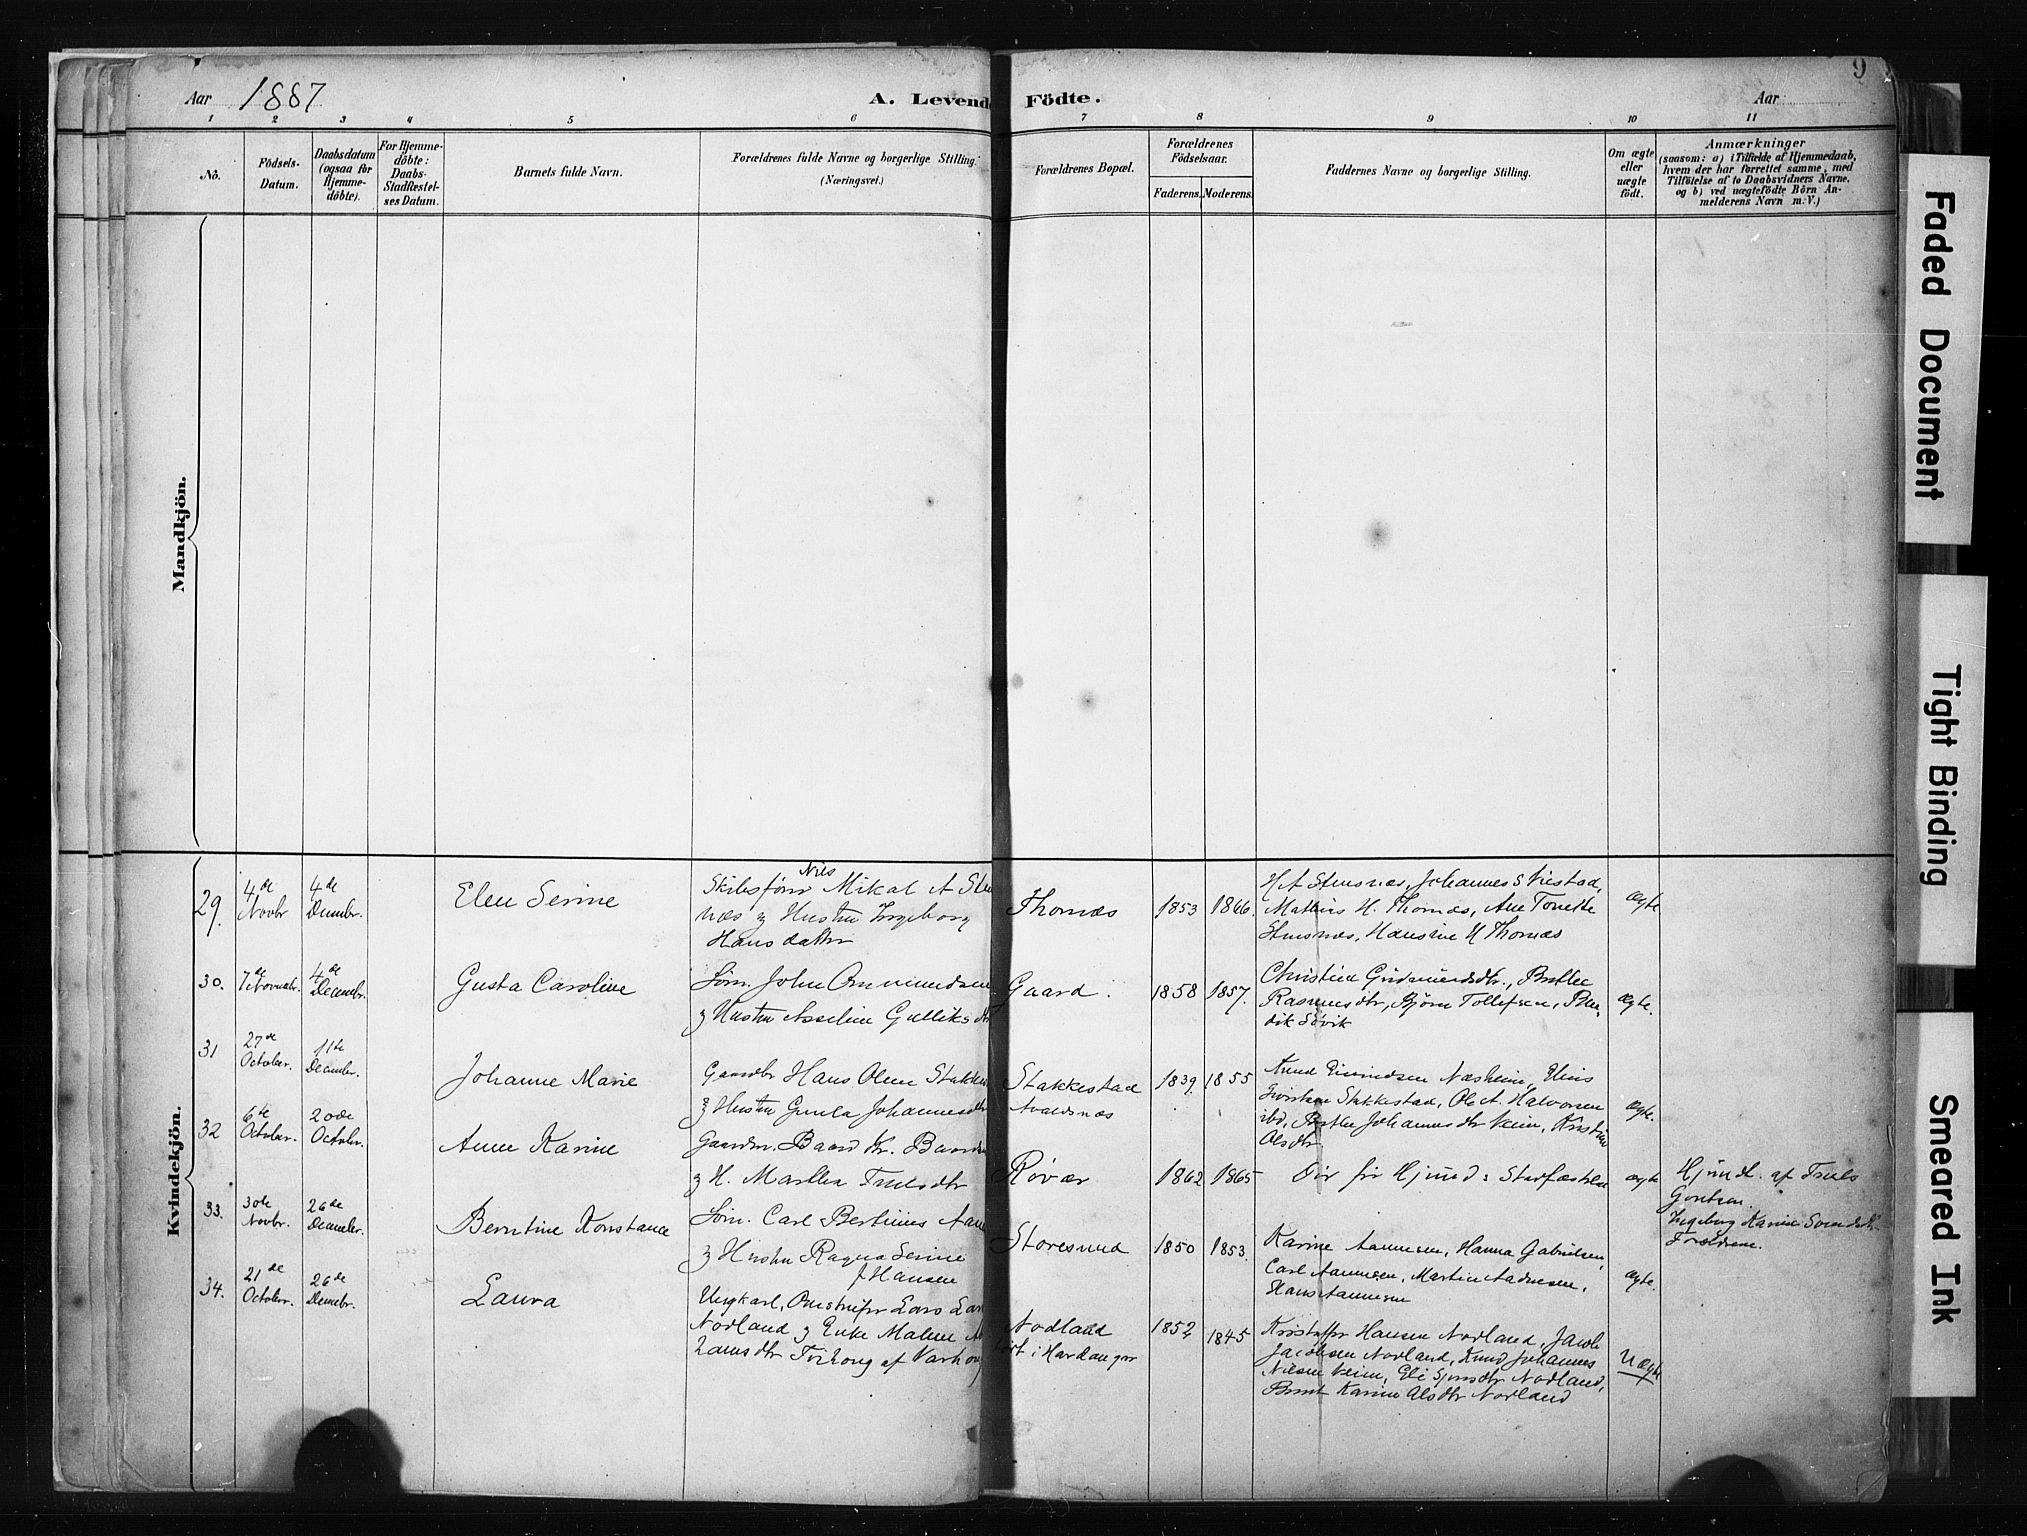 Aar 1887
A. Levende Födte.
9
Aar
1 2 3 4 5 6 7 8 9 10 11
No.
Födsels-
Datum.
Daabsdatum
(ogsaa for
Hjemme-
döbte).
For Hjemme-
döbte:
Daabs-
Stadfæstel-
ses Datum.
Barnets fulde Navn.
Forældrenes fulde Navne og borgerlige Stilling.
(Næringsvei.)
Forældrenes Bopæl.
Forældrenes
Födselsaar.
Faderens. Moderens.
Faddernes Navne og borgerlige Stilling.
Om ægte
eller
uægte
födt.
Anmærkninger
(saasom: a) i Tilfælde af Hjemmedaab,
hvem der har forrettet samme, med
Tilföielse af to Daabsvidners Navne,
og b) ved uægtefödte Börn An-
melderens Navn m.V.)
Mandkjön.
Kvindekjön.
29. 4de Novbr 4de Decmbr.
Elen Serine
Nils
Mikal A
næs & Hustru Ingeborg
Hansdatter
Thornæs 1853 1866
Mathias H. Thornæs, Ane
Hansine H Thornæs
ægte
30. 7de Novembr. 4de Decembr.
Gusta Caroline
Søm. John Ommundsen
& Hustru Asseline Gulliks
Gaard. 1858 1857.
Christine Gudmundsdtr.,
Rasmusdtr, Bjørn Tollefsen,
ægte.
31 27de October. 11te Decembr.
Johanne Marie
Gaardbr Hans Olsen
& Hustru Gunla Johannesdtr
Stakkestad
Avaldsnæs
1839. 1855
Næsheim,
Stakkestad, Ole A. Halvorsen
ibd, Johannesdtr
Olsdtr.
ægte.
32 6te October. 20de Octobr.
Anne Karine
Gaardm. Baard Kr.
& H. Martha Trulsdtr
Røvær 1862 1865
ægte
Hjemd. af Truls
Ingeborg Karine
Forældrene.
33. 30te Novbr. 26de Decmbr.
Berntine Konstance
Søm. Carl Bertinius
& Hustru Ragna Serine
f Hansen
Storesund 1850 1853.
Karine Aanensen, Hanna Gabrielsen,
Carl Aanensen, Martin Aadnesen,
Hans Aanensen
ægte.
34. 21de October. 26de Decmbr.
Laura
Ungkarl, Lars
Nordland & Enke Malene
Larsdtr
Nodland
i Hardanger
1852 1845
Kristoffer Hansen Nordland, Jacob
Jacobsen Nordland, Knud Johannes
Nilsen Veim, Eli Nordland,
Karine Olsdtr Nordland
Uægte
Faded Document
Tight Binding
Smeared Ink